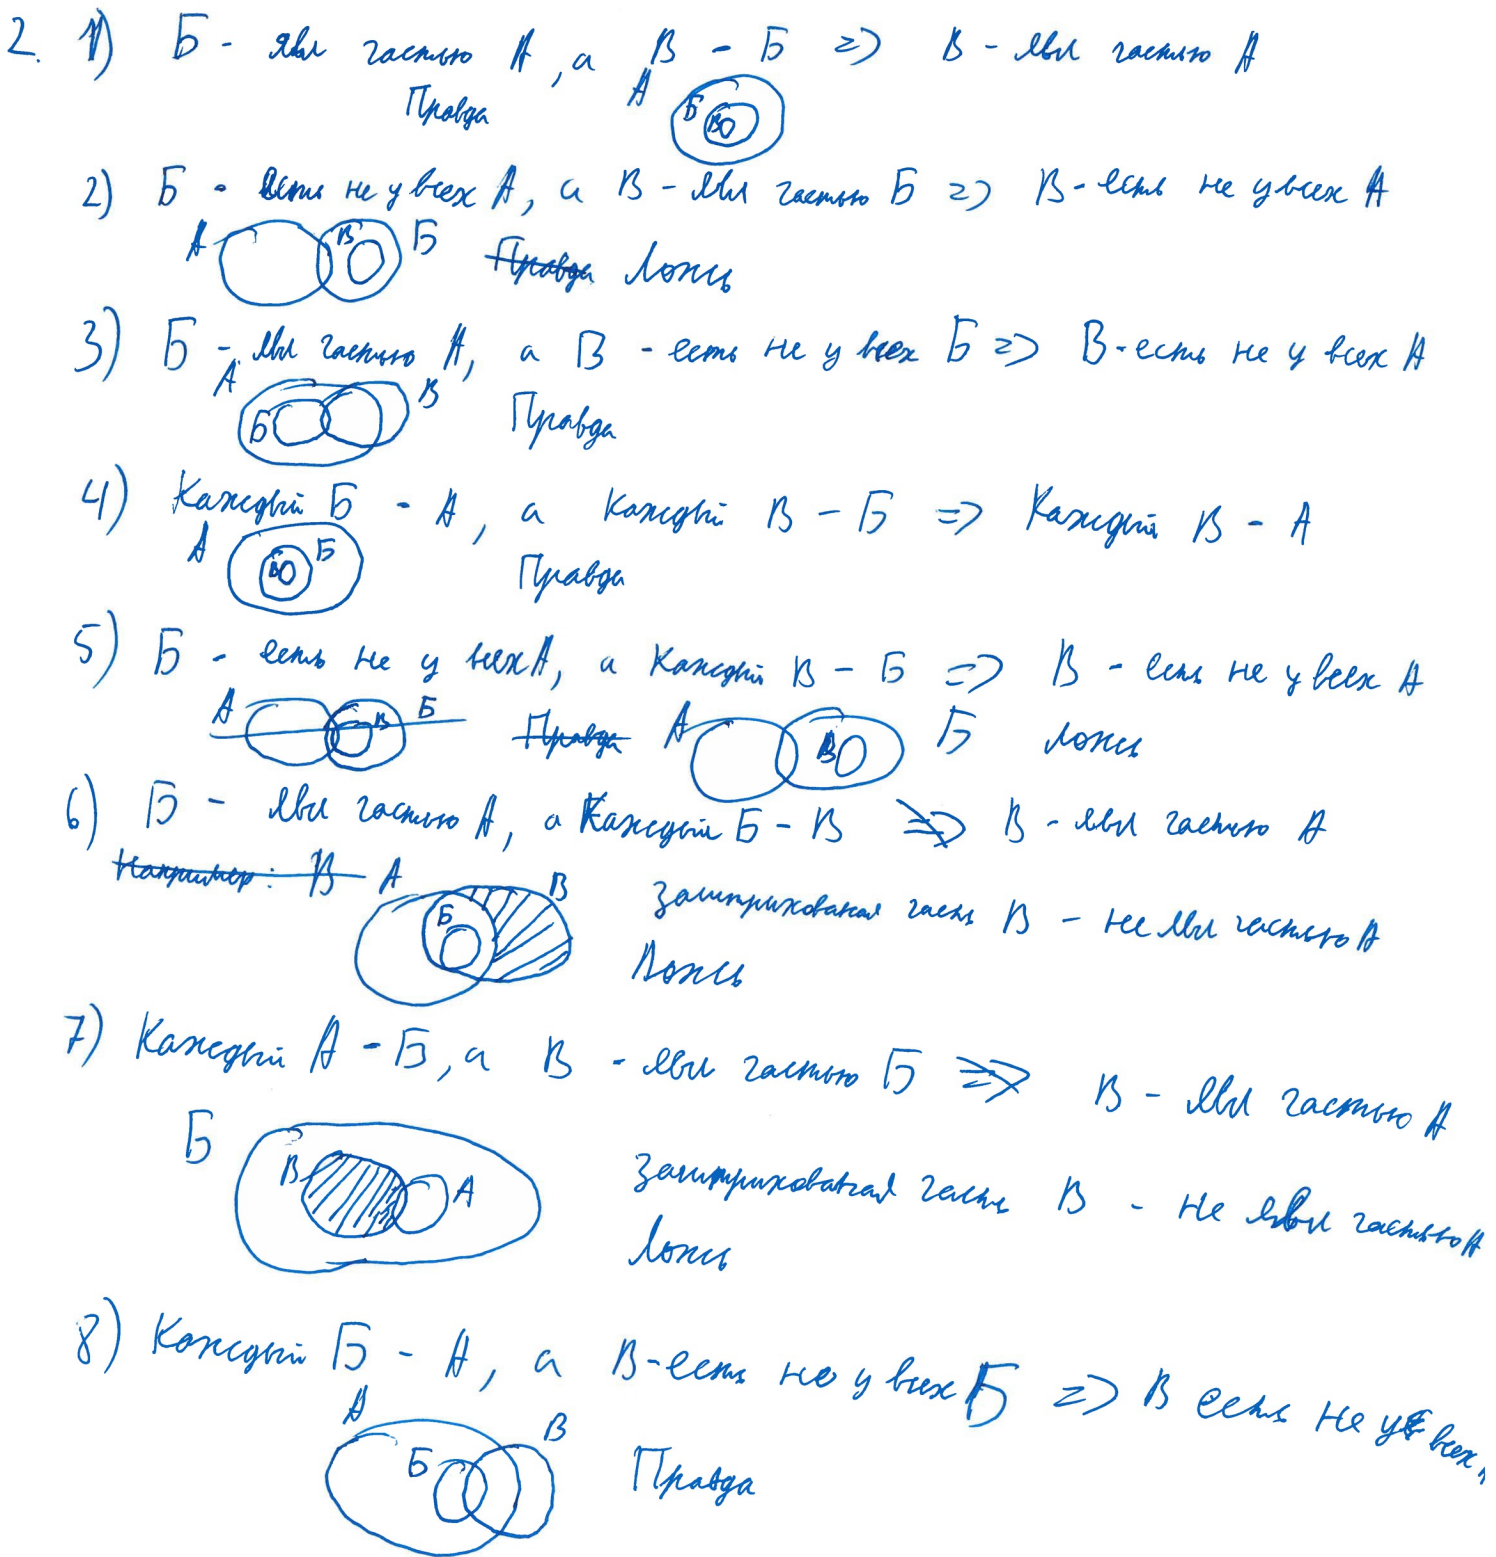 2. 1) Б - явл частью А, а В - Б => В - явл частью А
Правда
А Б В
2) Б - есть не у всех А, а В - явл частью Б => В - есть не у всех А
А В Б Правда Ложь
3) Б - явл частью А, а В - есть не у всех Б => В - есть не у всех А
А Б В Правда
4) Каждый Б - А, а каждый В - Б => Каждый В - А
А В Б Правда
5) Б - есть не у всех А, а каждый В - Б => В - есть не у всех А
А В Б Правда А В Б Ложь
6) Б - явл частью А, а Каждый Б - В => В - явл частью А
Например: В А Б В Заштрихованая часть В - не явл частью А
Ложь
7) Каждый А - Б, а В - явл частью Б => В - явл частью А
Б В А Заштрихованая часть В - не явл частью А
Ложь
8) Каждый Б - А, а В - есть не у всех Б => В есть не у всех А
А Б В Правда